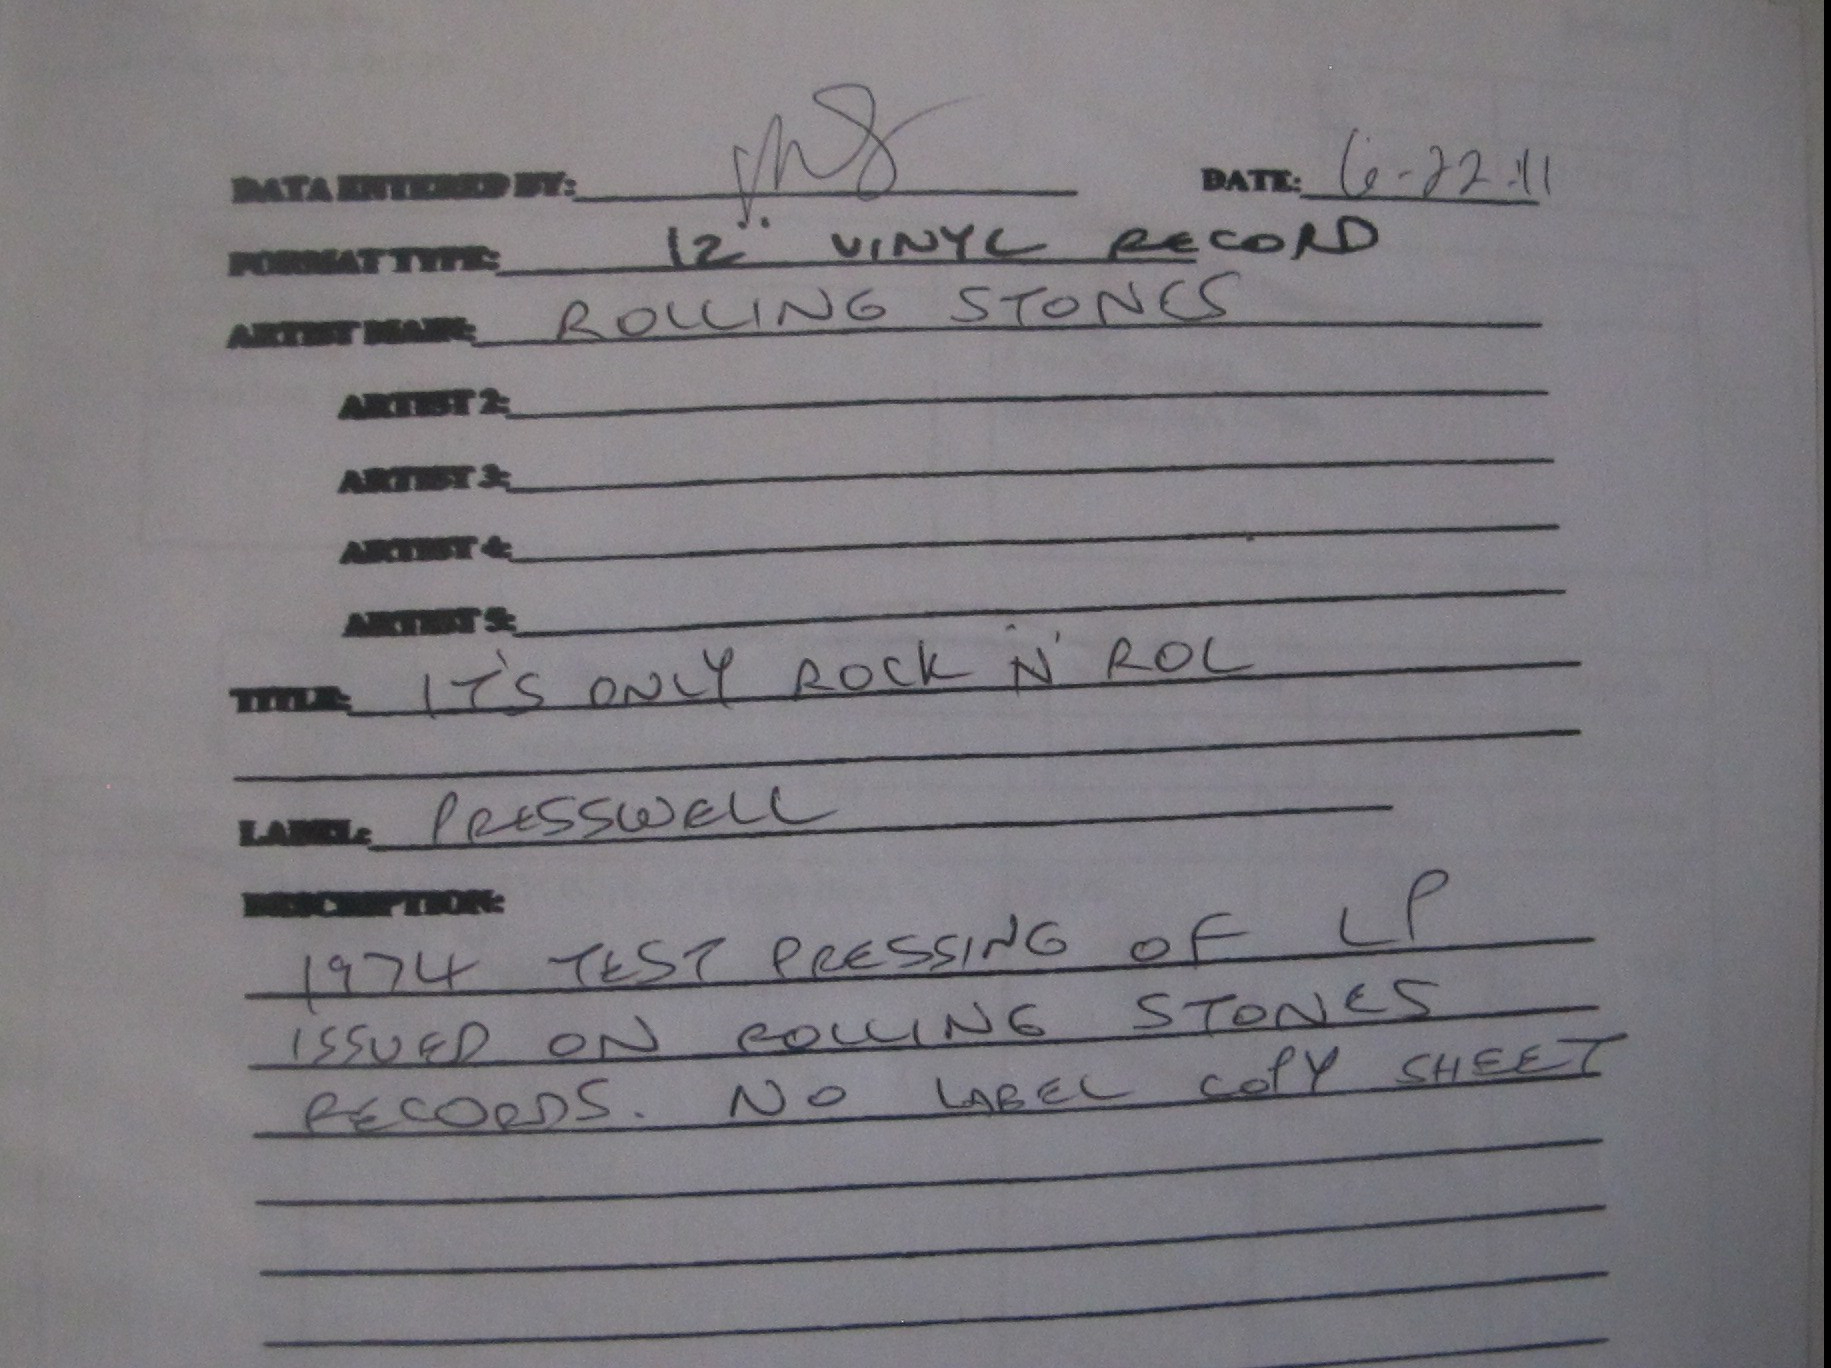 DATA ENTERED BY: DATE: 6-22-11
FORMAT TYPE: 12" VINYL RECORD
ARTIST MAIN: ROLLING STONES
ARTIST 2:
ARTIST 3:
ARTIST 4:
ARTIST 5:
TITLE: IT'S ONLY ROCK 'N' ROL
LABEL: PRESSWELL
DESCRIPTION:
1974 TEST PRESSING OF LP
ISSUED ON ROLLING STONES
RECORDS. NO LABEL COPY SHEET